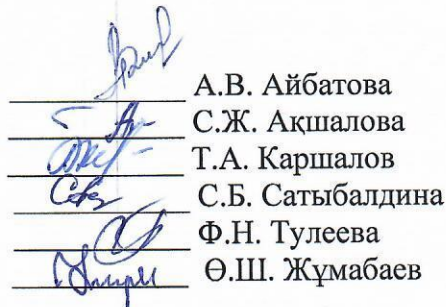 А.В. Айбатова
С.Ж. Ақшалова
Т.А. Каршалов
С.Б. Сатыбалдина
Ф.Н. Тулеева
Ө.Ш. Жұмабаев